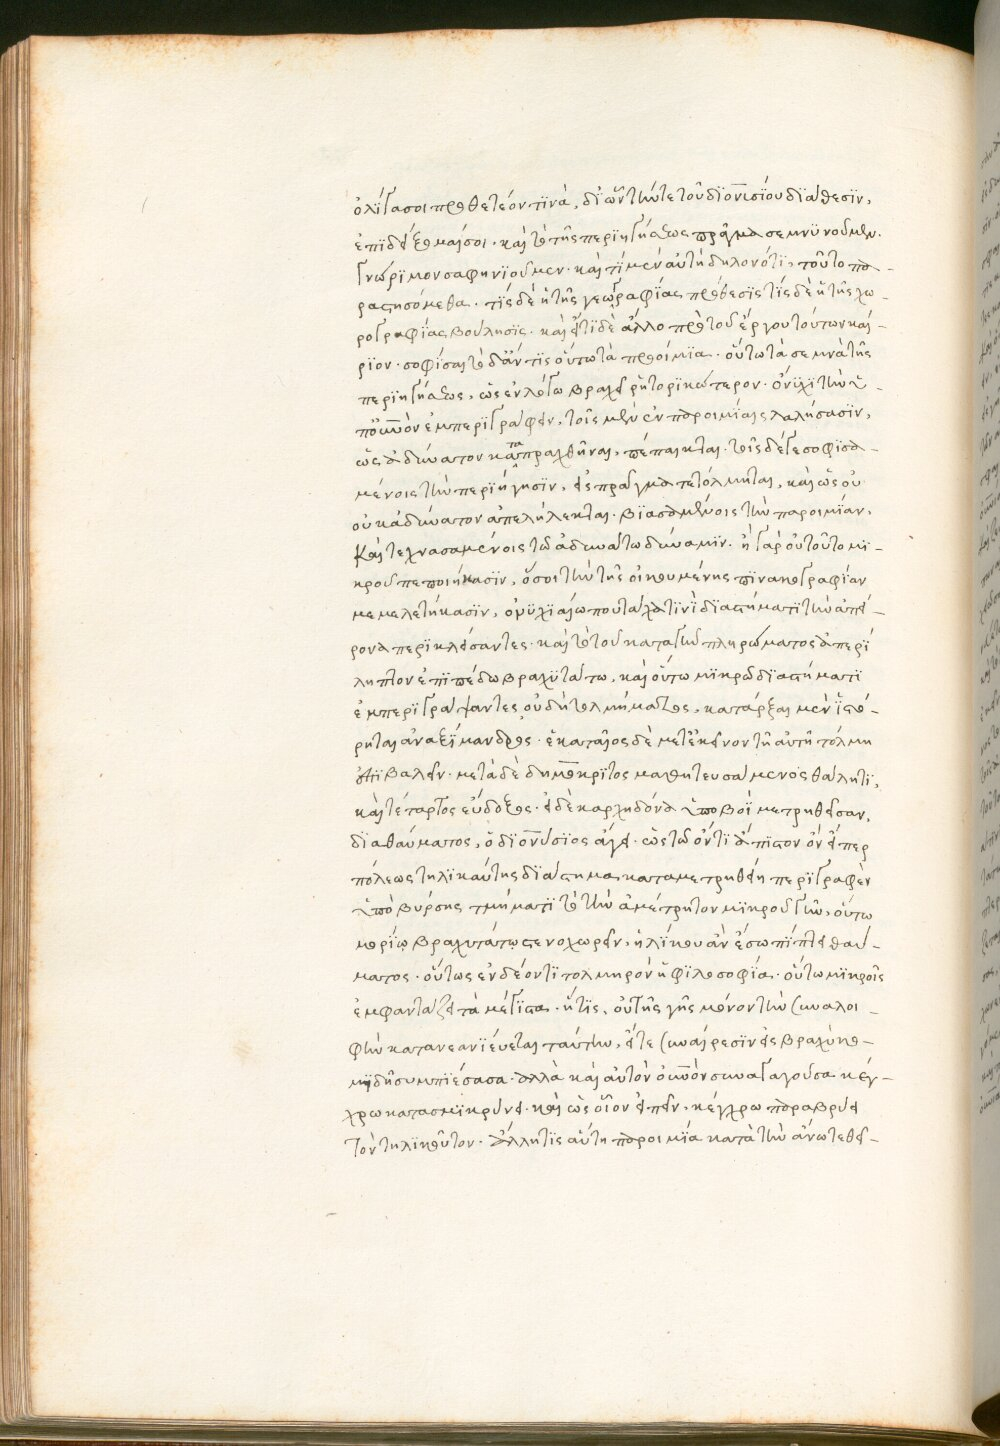 ὀλίγα σοι προθετέον τινὰ, δι' ὧν τήν τε τοῦ διονυσίου διάθεσιν,
ἐπιδείξομαί σοι· καὶ τὸ τῆς περιηγήσεως πρᾶγμα σεμνύνουμεν.
γνώριμον σαφηνιοῦμεν· καὶ τί μὲν αὐτὴ δηλονότι, τοῦτο πα-
ραστησόμεθα· τίς δὲ ἡ τῆς γεωγραφίας πρόθεσις τίς δὲ ἡ τῆς χω-
ρογραφίας βούλησις· καὶ εἴ τι δὲ ἄλλο πρὸ τοῦ ἔργου τούτων καί-
ριον· σοφίσαιτο δ' ἄν τις οὕτω τὰ προοίμια· οὕτω τὰ σεμνὰ τῆς
περιηγήσεως, ὡς ἐν λόγω βραχεῖ ῥητορικώτερον· ὀνύχι τὴν ἅ-
ποὐνὸν ἐμπεριγράφειν, τοῖς μὲν ἐν παροιμίαις λαλήσασιν,
ὡς ἀδύνατον καταπραχθῆναι, πέπαικται· τοῖς δέ γε σοφισα-
μένοις τὴν περιήγησιν, εἰς πρᾶγμα τετόλμηται, καὶ ὡς οὐ
οὐκ ἀδύνατον ἀπελήλεκται· βιασαμένοις τὴν παροιμίαν,
καὶ τεχνασαμένοις τῶ ἀδυνάτω δύναμιν· ἢ γὰρ οὐ τοῦτο μι-
κροῦ πεποιήκασιν, ὅσοι τὴν τῆς οἰκουμένης πινακογραφίαν
μεμελετήκασιν, ὀνυχιαίω που τάχα τινὶ διαστήματι τὴν ἀπεί-
ρονα περικλείσαντες· καὶ τὸ τοῦ κατὰ γῆν πληρώματος ἀπερί
ληπτον ἐπιπέδω βραχυτάτω, καὶ οὕτω μικρῶ διαστήματι
ἐμπεριγράψαντες οὗ δὴ τολμήματος, κατάρξαι μὲν ἱστό-
ρηται ἀναξίμανδρος· ἑκαταῖος δὲ μετ' ἐκεῖνον τῆ αὐτῆ τόλμη
ἐπιβαλεῖν· μετὰ δὲ δημόκριτος μαθητευσάμενος θάλητι,
καὶ τέταρτος εὔδοξος· εἰ δὲ καρχηδόνα ὑπὸ βοῒ μετρηθεῖσαν,
διὰ θαύματος, ὁ διονύσιος ἄγει· ὡς τῶ ὄντι ἄπιστον ὂν εἴπερ
πόλεως τηλικαύτης διάστημα καταμετρηθείη περιγραφὲν
ὑπὸ βύρσης τμήματι τὸ τὴν ἀμέτρητον μικροῦ γῆν, οὕτω
μορίῳ βραχυτάτῳ στενοχωρεῖν, ἡλίκου ἂν ἔσω πίπτει θαύ-
ματος· οὕτως ἐν δέοντι τολμηρὸν ἡ φιλοσοφία· οὕτω μικροῖς
ἐμφαντάζει τὰ μέγιστα· ἥτις, οὐ τῆς γῆς μόνον τὴν συναλοι-
φὴν κατανεανιεύεται ταύτην, εἴτε συναίρεσιν εἰς βραχὺ κο-
μιδῆ συμπιέσασα· ἀλλὰ καὶ αὐτὸν οὐνὸν συναγαγοῦσα κέγ-
χρω κατασμικρύνει· καὶ ὡς οἷον εἰπεῖν· κέγχρω παραβρύει
τὸν τηλικοῦτον· ἄλλη τις αὕτη παροιμία κατὰ τὴν ἀνωτεθεῖ-